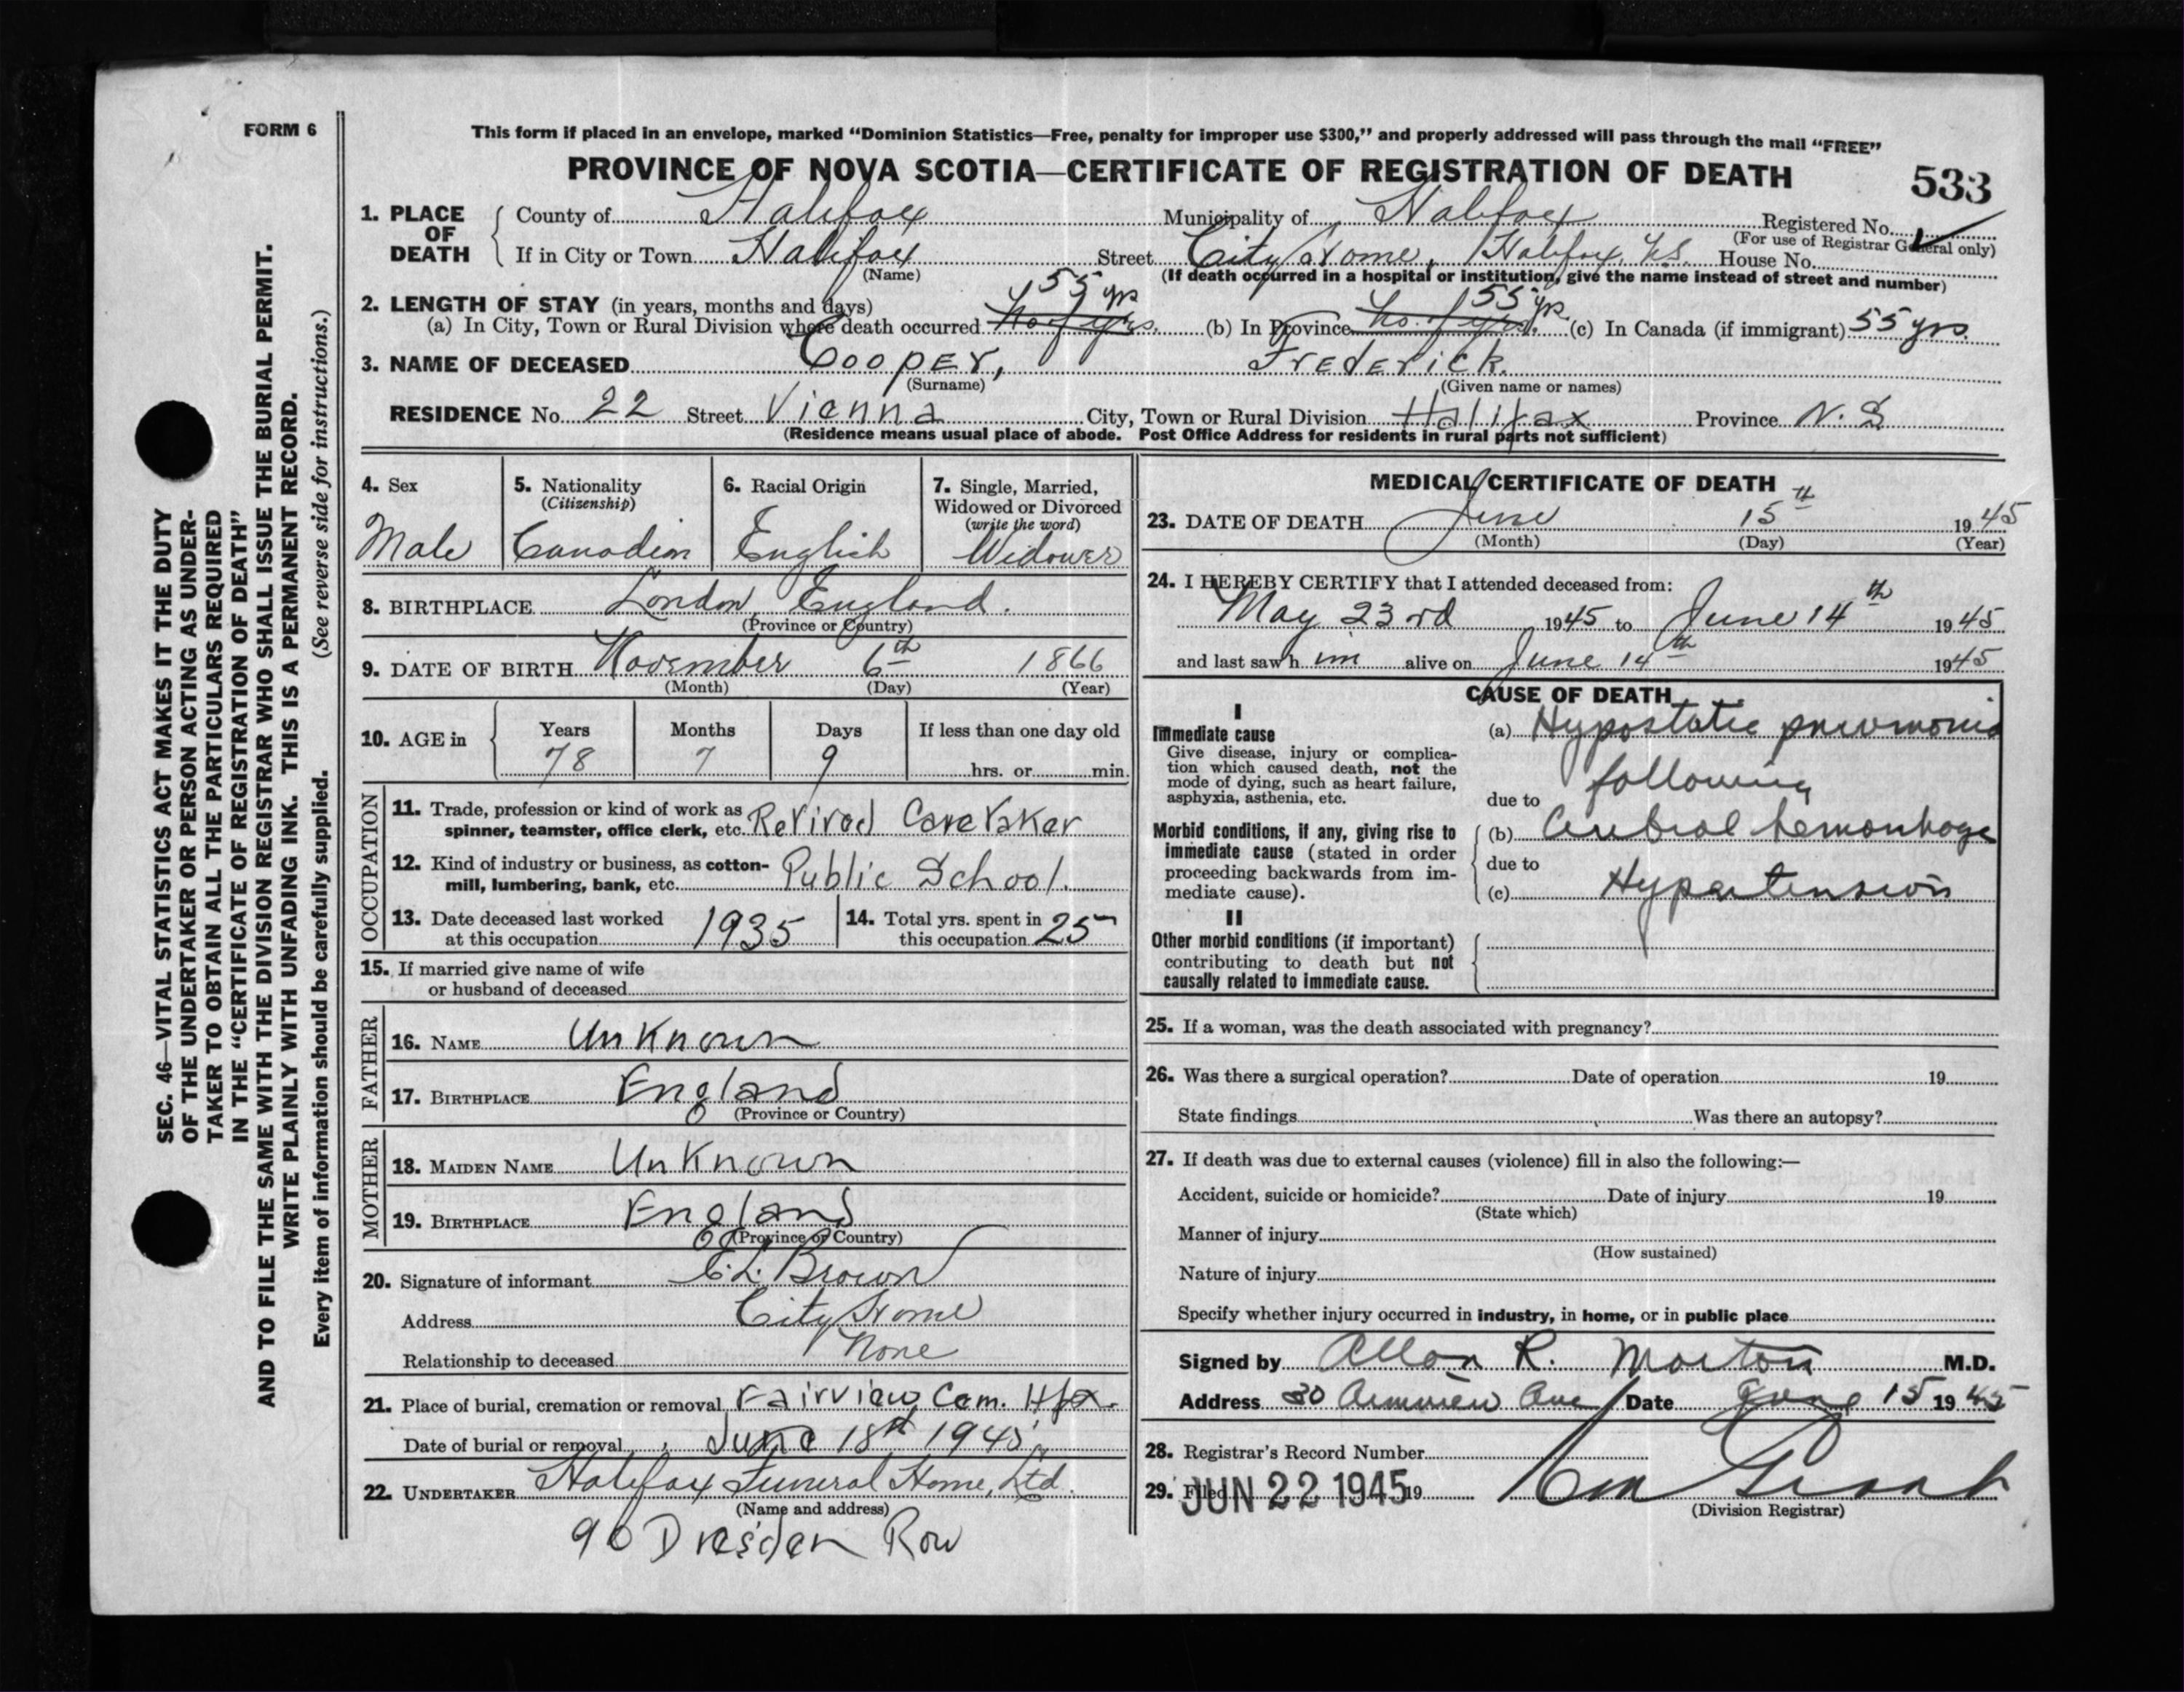 FORM 6
SEC. 46—VITAL STATISTICS ACT MAKES IT THE DUTY
OF THE UNDERTAKER OR PERSON ACTING AS UNDER-
TAKER TO OBTAIN ALL THE PARTICULARS REQUIRED
IN THE “CERTIFICATE OF REGISTRATION OF DEATH”
AND TO FILE THE SAME WITH THE DIVISION REGISTRAR WHO SHALL ISSUE THE BURIAL PERMIT.
WRITE PLAINLY WITH UNFADING INK. THIS IS A PERMANENT RECORD.
Every item of information should be carefully supplied. (See reverse side for instructions.)
This form if placed in an envelope, marked “Dominion Statistics—Free, penalty for improper use $300,” and properly addressed will pass through the mail “FREE”
PROVINCE OF NOVA SCOTIA—CERTIFICATE OF REGISTRATION OF DEATH 533
1. PLACE OF DEATH County of Halifax Municipality of Halifax Registered No.
(For use of Registrar General only)
If in City or Town Halifax Street City Home, Halifax, N.S. House No.
(Name) (If death occurred in a hospital or institution, give the name instead of street and number)
2. LENGTH OF STAY (in years, months and days)
55 yrs 55 yrs
(a) In City, Town or Rural Division where death occurred No. of yrs. (b) In Province No. of yrs. (c) In Canada (if immigrant) 55 yrs.
3. NAME OF DECEASED Cooper, Frederick.
(Surname) (Given name or names)
RESIDENCE No. 22 Street Vienna City, Town or Rural Division Halifax Province N.S
(Residence means usual place of abode. Post Office Address for residents in rural parts not sufficient)
4. Sex
Male
5. Nationality
(Citizenship)
Canadian
6. Racial Origin
English
7. Single, Married,
Widowed or Divorced
(write the word)
Widower
8. BIRTHPLACE London, England.
(Province or Country)
9. DATE OF BIRTH November 6th 1866
(Month) (Day) (Year)
10. AGE in Years Months Days If less than one day old
78 7 9 hrs. or min.
OCCUPATION
11. Trade, profession or kind of work as
spinner, teamster, office clerk, etc. Retired Caretaker
12. Kind of industry or business, as cotton-
mill, lumbering, bank, etc. Public School.
13. Date deceased last worked
at this occupation 1935
14. Total yrs. spent in
this occupation 25
15. If married give name of wife
or husband of deceased
FATHER
16. NAME Unknown
17. BIRTHPLACE England
(Province or Country)
MOTHER
18. MAIDEN NAME Unknown
19. BIRTHPLACE England
(Province or Country)
20. Signature of informant E.L. Brown
Address City Home
Relationship to deceased None
21. Place of burial, cremation or removal Fairview Cem. Hfx.
Date of burial or removal June 18th 1945
22. UNDERTAKER Halifax Funeral Home, Ltd.
(Name and address)
90 Dresden Row
MEDICAL CERTIFICATE OF DEATH
23. DATE OF DEATH June 15th 1945
(Month) (Day) (Year)
24. I HEREBY CERTIFY that I attended deceased from:
May 23rd 1945 to June 14th 1945
and last saw h im alive on June 14th 1945
CAUSE OF DEATH
I
Immediate cause
Give disease, injury or complica-
tion which caused death, not the
mode of dying, such as heart failure,
asphyxia, asthenia, etc.
(a) Hypostatic pneumonia
due to following
Morbid conditions, if any, giving rise to
immediate cause (stated in order
proceeding backwards from im-
mediate cause).
(b) Cerebral hemorrhage
due to
(c) Hypertension
II
Other morbid conditions (if important)
contributing to death but not
causally related to immediate cause.
25. If a woman, was the death associated with pregnancy?
26. Was there a surgical operation? Date of operation 19
State findings Was there an autopsy?
27. If death was due to external causes (violence) fill in also the following:—
Accident, suicide or homicide? Date of injury 19
(State which)
Manner of injury
(How sustained)
Nature of injury
Specify whether injury occurred in industry, in home, or in public place
Signed by Allan R. Morton M.D.
Address 30 Armview Ave Date June 15 1945
28. Registrar's Record Number
29. Filed JUN 22 1945 19
(Division Registrar)